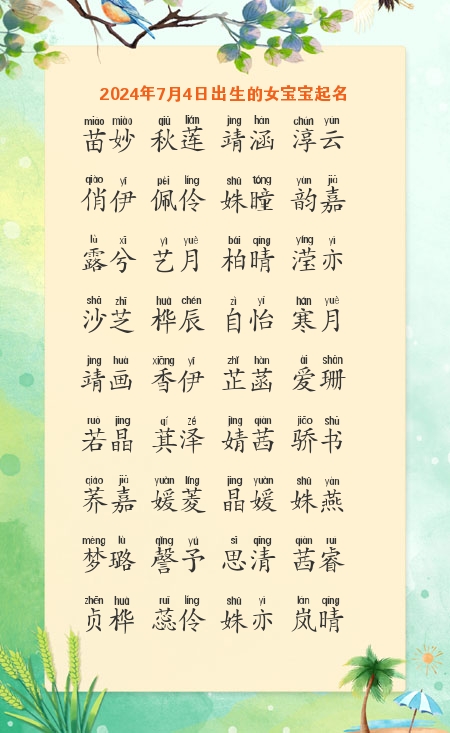 2024年7月4日出生的女宝宝起名
miáo miào qiū lián jìng hán chún yún
苗妙 秋莲 靖涵 淳云
qiào yī pèi líng shū tóng yùn jiā
俏伊 佩伶 姝瞳 韵嘉
lù xī yì yuè bǎi qíng yíng yì
露兮 艺月 柏晴 滢亦
shā zhī huà chén zì yí hán yuè
沙芝 桦辰 自怡 寒月
jìng huà xiāng yī zhǐ hàn ài shān
靖画 香伊 芷菡 爱珊
ruò jīng qí zé jìng qiàn jiāo shū
若晶 萁泽 婧茜 骄书
qiáo jiā yuàn líng jīng yuàn shū yàn
荞嘉 媛菱 晶媛 姝燕
mèng lù qìng yú sī qīng qiàn ruì
梦璐 謦予 思清 茜睿
zhēn huà ruǐ líng shū yì lán qíng
贞桦 蕊伶 姝亦 岚晴